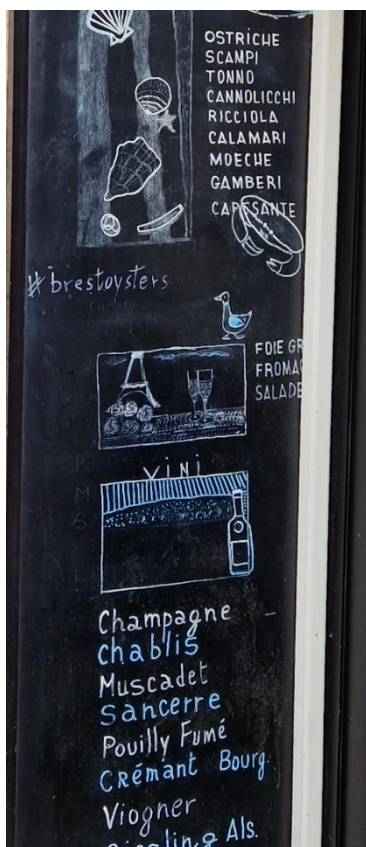 OSTRICHE
SCAMPI
TONNO
CANNOLICCHI
RICCIOLA
CALAMARI
MOECHE
GAMBERI
CAPESANTE
#brestoysters
FOIE GR
FROMAG
SALADE
VINI
Champagne
Chablis
Muscadet
Sancerre
Pouilly Fumé
Crémant Bourg.
Viogner
Riesling Als.